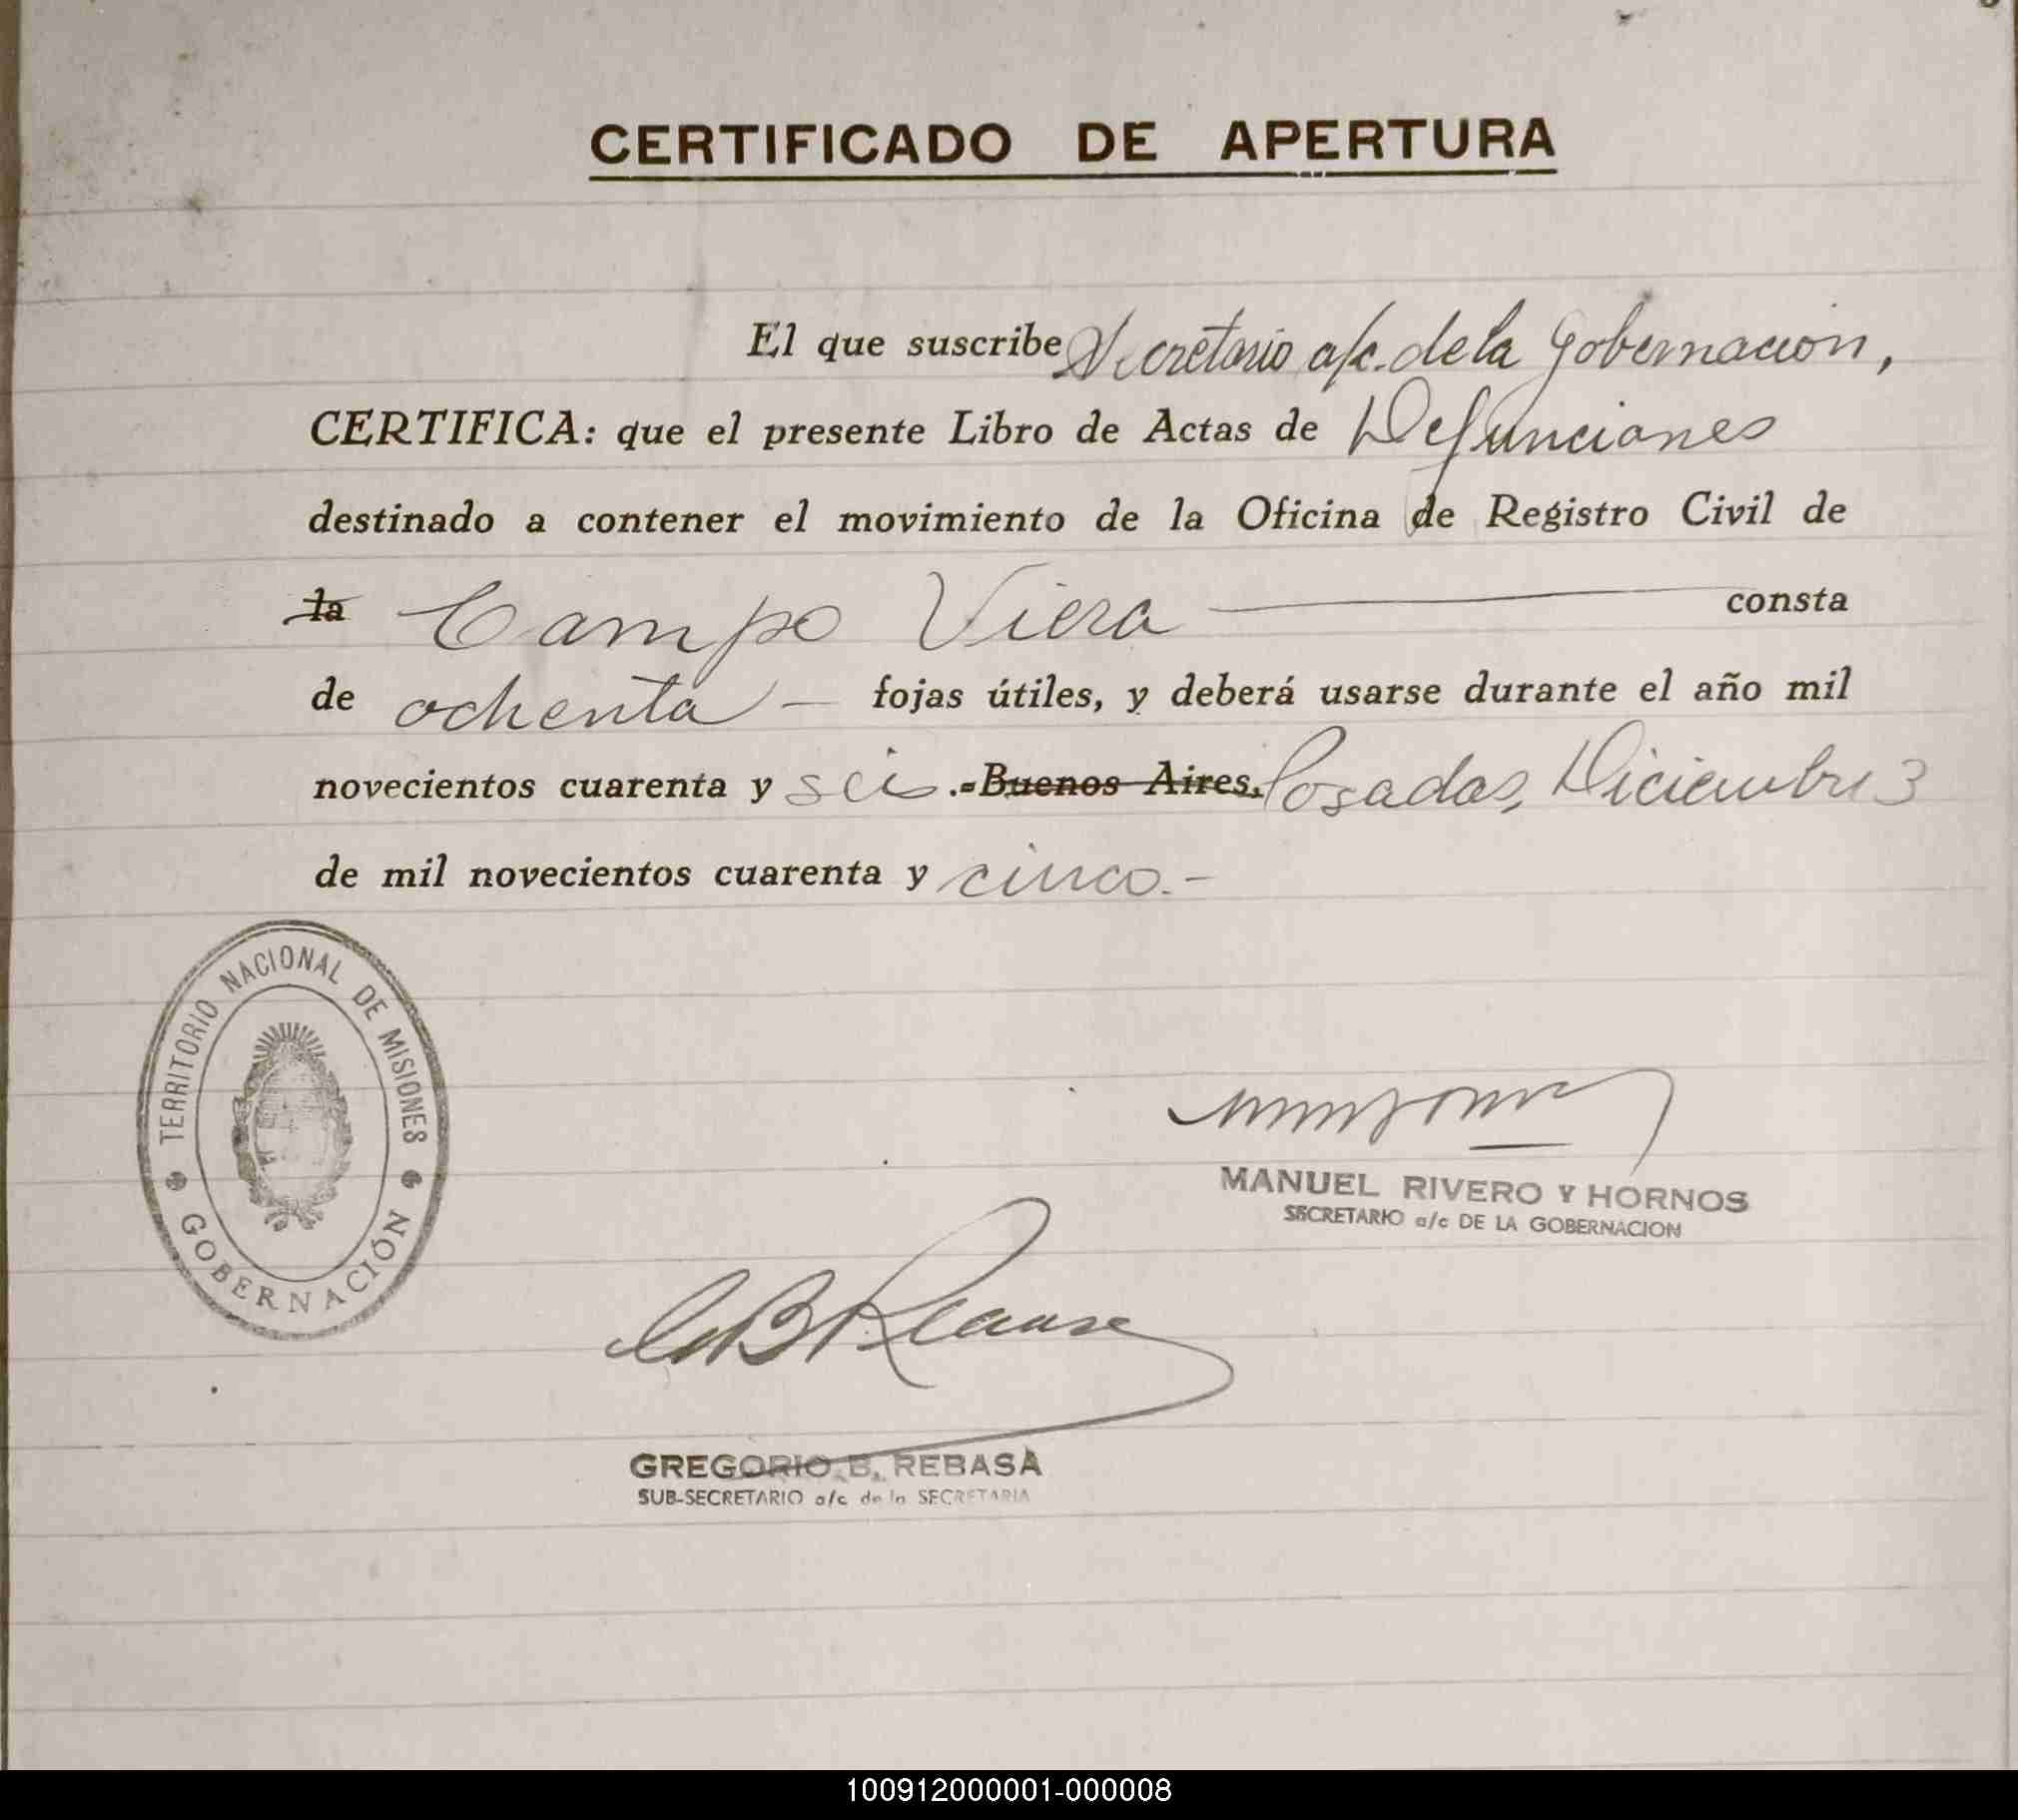 CERTIFICADO DE APERTURA
El que suscribe Secretario a/c. de la Gobernación,
CERTIFICA: que el presente Libro de Actas de Defunciones
destinado a contener el movimiento de la Oficina de Registro Civil de
la Campo Viera consta
de ochenta — fojas útiles, y deberá usarse durante el año mil
novecientos cuarenta y seis .-Buenos Aires, Posadas, Diciembre 3
de mil novecientos cuarenta y cinco.-
TERRITORIO NACIONAL DE MISIONES
GOBERNACIÓN
MANUEL RIVERO Y HORNOS
SECRETARIO a/c DE LA GOBERNACION
GREGORIO B. REBASA
SUB-SECRETARIO a/c de la SECRETARIA
100912000001-000008